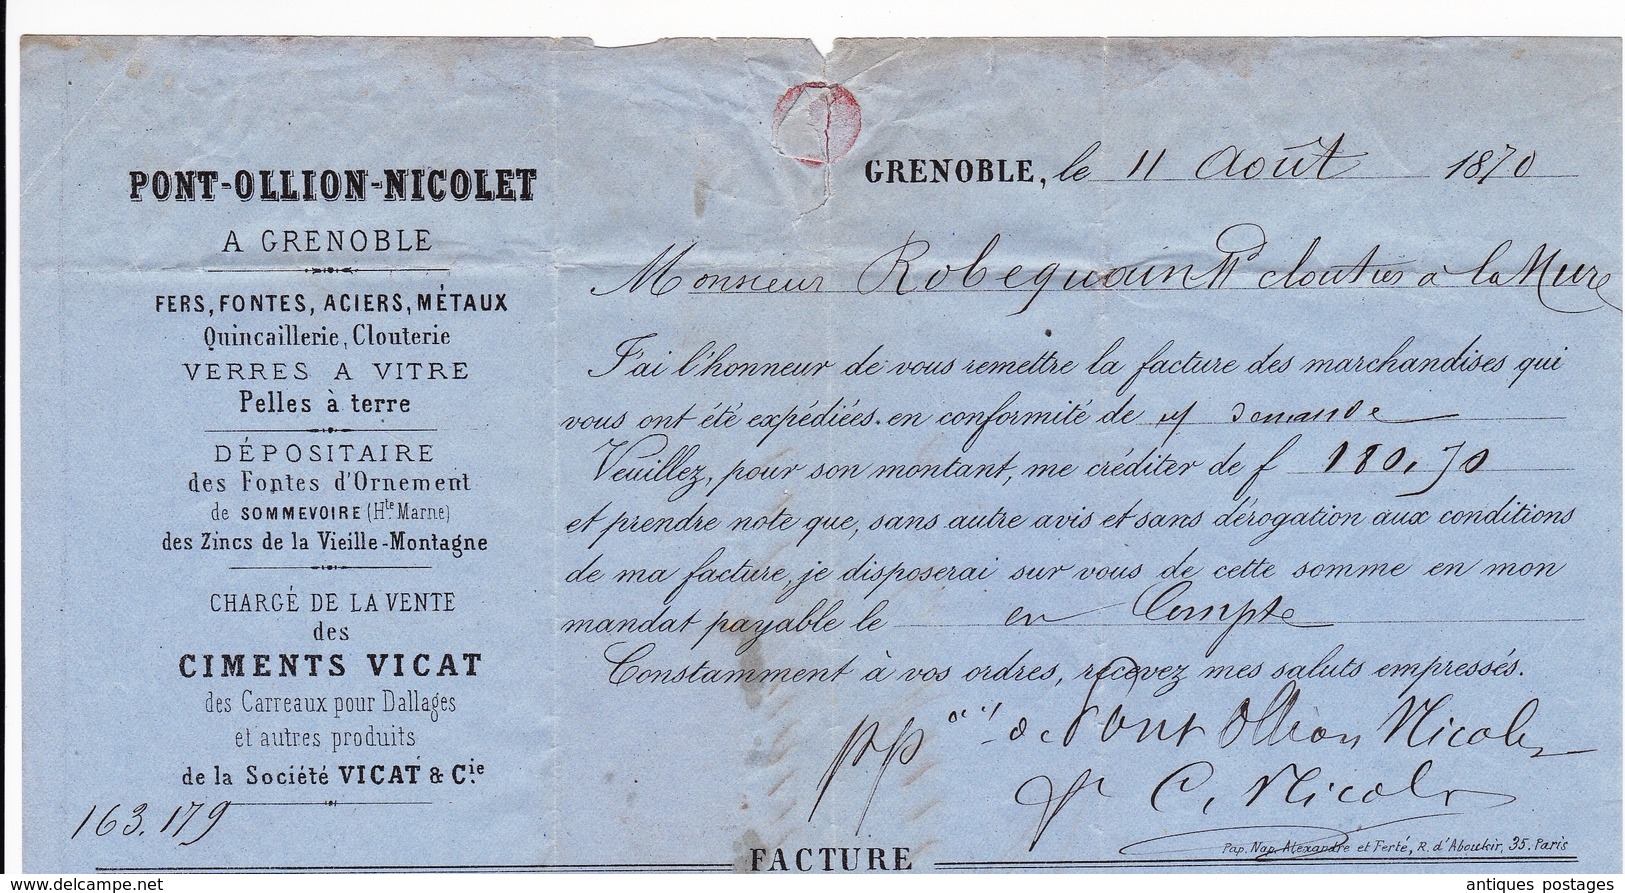 PONT-OLLION-NICOLET
A GRENOBLE
FERS, FONTES, ACIERS, MÉTAUX
Quincaillerie, Clouterie
VERRES A VITRE
Pelles à terre
DÉPOSITAIRE
des Fontes d'Ornement
de SOMMEVOIRE (Hte Marne)
des Zincs de la Vieille-Montagne
CHARGÉ DE LA VENTE
des
CIMENTS VICAT
des Carreaux pour Dallages
et autres produits
de la Société VICAT & Cie.
163.179
GRENOBLE, le 11 Août 1870
Monsieur Robequain Md cloutier à la Mure
J'ai l'honneur de vous remettre la facture des marchandises qui
vous ont été expédiées en conformité de demande
Veuillez, pour son montant, me créditer de f 180,70
et prendre note que, sans autre avis et sans dérogation aux conditions
de ma facture, je disposerai sur vous de cette somme en mon
mandat payable le en Compte
Constamment à vos ordres, recevez mes saluts empressés.
de Pont Ollion Nicolet
C. Nicolet
Pap. Nap. Alexandre et Ferté, R. d'Aboukir, 35. Paris
FACTURE
antiques postages